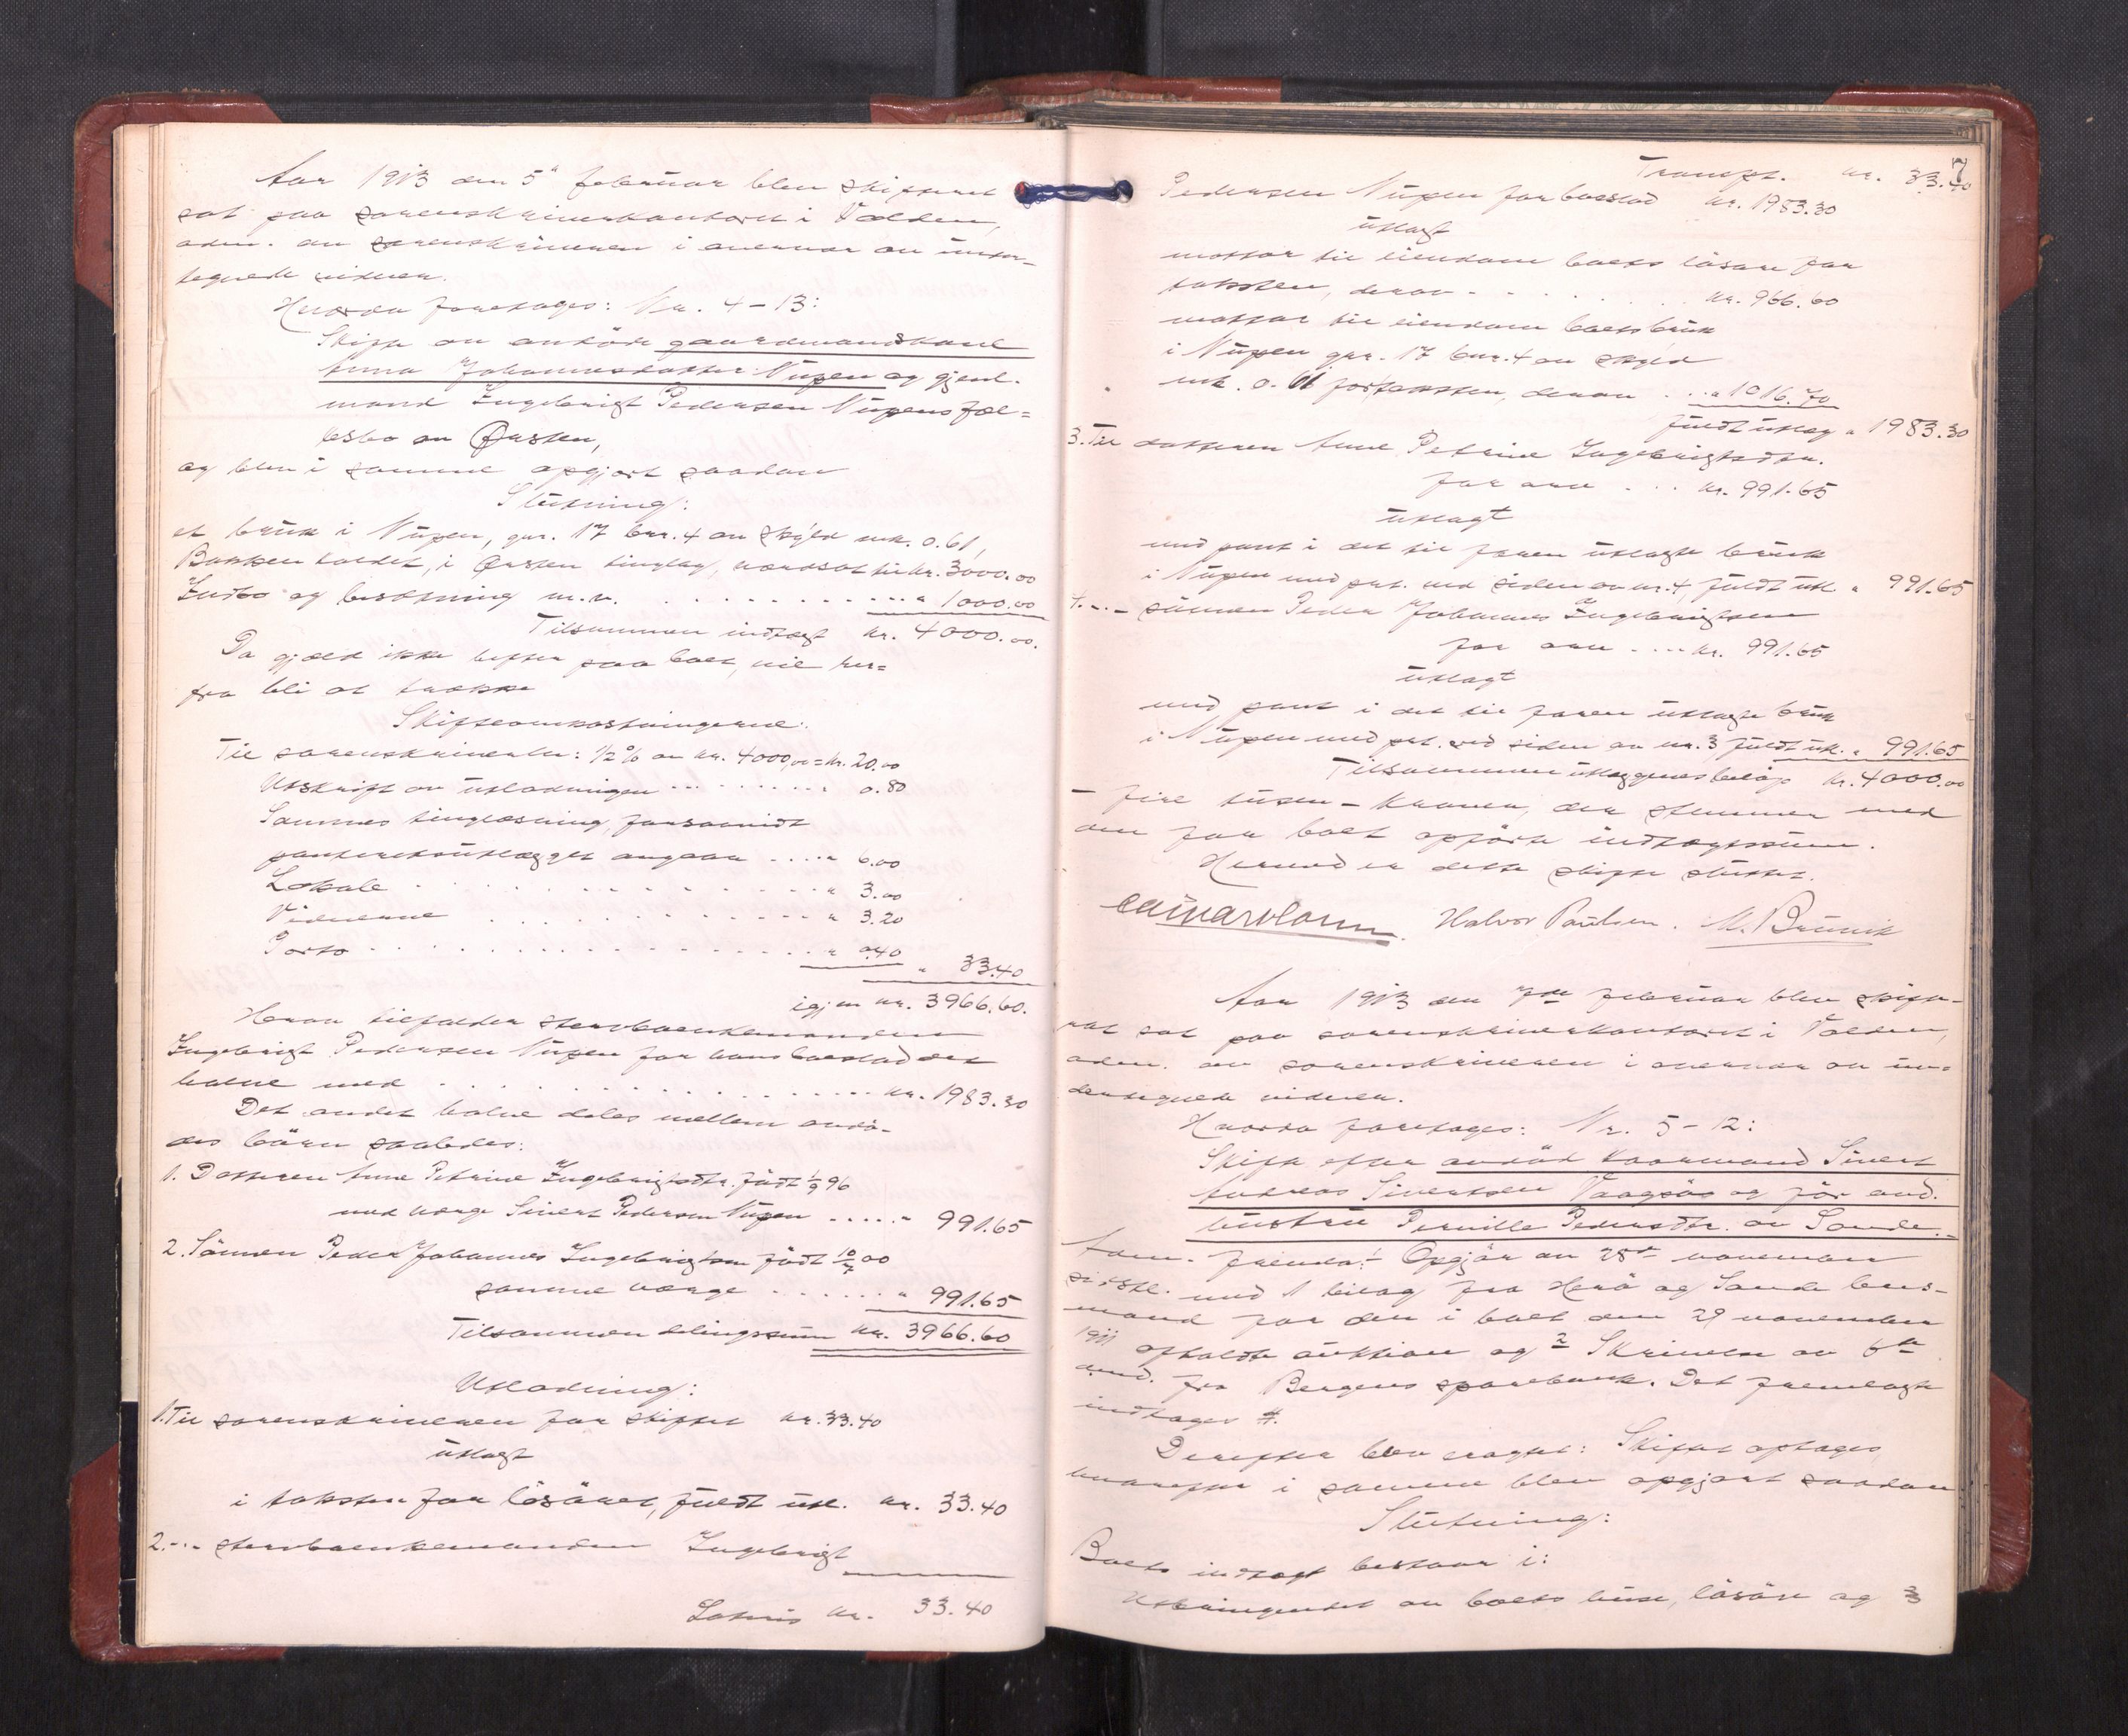 Aar 1913 den 5te februar blev skifteret
sat paa sorenskriverkontoret i Volden,
adm. av sorenskriveren i overvær av under-
tegnede vidner.
Hvorda foretages: Nr. 4-13:
Skifte av avdöde gaardmandskone
Anna Johannesdatter Nupen og gjenl.
mand Ingebrigt Pedersen Nupens fæl=
lesbo av Ørsten,
og blev i samme opgjort saadan
Slutning:
et bruk i Nupen, gnr. 17 bnr. 4 av skyld mrk. 0.61,
Bakken kaldet, i Ørsten tinglag, værdsat til kr. 3000.00
Indbo og besætning m.v. . . . . . . . . . . . . " 1000.00
Tilsammen indtægt kr. 4000.00.
Da gjæld ikke hefter paa boet, vil her=
fra bli at trække
Skifteomkostningerne:
Til sorenskriveren: 1/2 % av kr. 4000,00 = kr. 20.00
Utskrift av utlodningen . . . . . . . . . " 0.80
Sammes tinglæsning, forsaavidt
panteretsutlægget angaar . . . . " 6.00
Lokale . . . . . . . . . . . . . . . " 3.00
Vidnerne . . . . . . . . . . . . . " 3.20
Porto . . . . . . . . . . . . . . . . " 0.40
" 33.40
igjen kr. 3966.60.
Herav tilfalder sterboenkemanden
Ingebrigt Pedersen Nupen for hans boeslod det
halve med . . . . . . . . . . . . . . . . kr. 1983.30
Det andet halve deles mellem avdö-
des börn saaledes:
1. Datteren Anne Petrine Ingebrigtsdtr. född 1/9 96
med værge Sivert Pedersen Nupen . . . . . " 991.65
2. Sönnen Peder Johannes Ingebrigtsen född 10/7 00
samme værge . . . . . . . " 991.65
Tilsammen delingssum kr. 3966.60
Utlodning:
1. Til sorenskriveren for skiftet kr. 33.40
utlagt
i taksten for lösöret, fuldt utl. kr. 33.40
2. -"- sterboenkemanden Ingebrigt
Lateris kr. 33.40
7
Transpt. kr. 33.40
Pedersen Nupen for boeslod kr. 1983.30
utlagt
mottar til eiendom boets lösöre for
taksten, derav . . . . . . . . . kr. 966.60
mottar til eiendom boets bruk
i Nupen gnr. 17 bnr. 4 av skyld
mrk. 0.61 for taksten, derav . . . " 1016.70
fuldt utlæg " 1983.30
3. Til datteren Anne Petrine Ingebrigtsdtr.
for arv . . . kr. 991.65
utlagt
med pant i det til faren utlagte bruk
i Nupen med prt. ved siden av nr. 4, fuldt utl. " 991.65
4. -"- sönnen Peder Johannes Ingebrigtsen
for arv . . . . kr. 991.65
utlagt
med pant i det til faren utlagte bruk
i Nupen med prt. ved siden av nr. 3 fuldt utl. " 991.65
Tilsammen utlæggenes belöp kr. 4000.00
- fire tusen - kroner, der stemmer med
den for boet opförte indtægtssum.
Hermed er dette skifte sluttet.
Halvor Paulsen. M. Brunvik
Aar 1913 den 7de februar blev skifte-
ret sat paa sorenskriverkontoret i Volden,
adm. av sorenskriveren i overvær av un-
dertegnede vidner.
Hvorda foretages: Nr. 5-12:
Skifte efter avdöd kaarmand Sivert
Andreas Sivertsen Vaagsös og för avd.
hustru Pernille Pedersdtr. av Sande.
Adm. fremla: Opgjör av 28de november
sidstl. med 1 bilag fra Herö og Sande lens-
mand for den i boet den 29 november
1911 avholdte auktion og 2 Skrivelse av 6te
dmd. fra Bergens sparebank. Det fremlagte
indtages #.
Derefter blev eragtet: Skiftet optages,
hvorefter i samme blev opgjort saadan
Slutning:
Boets indtægt bestaar i:
Utbringendet av boets huse, lösöre og 3